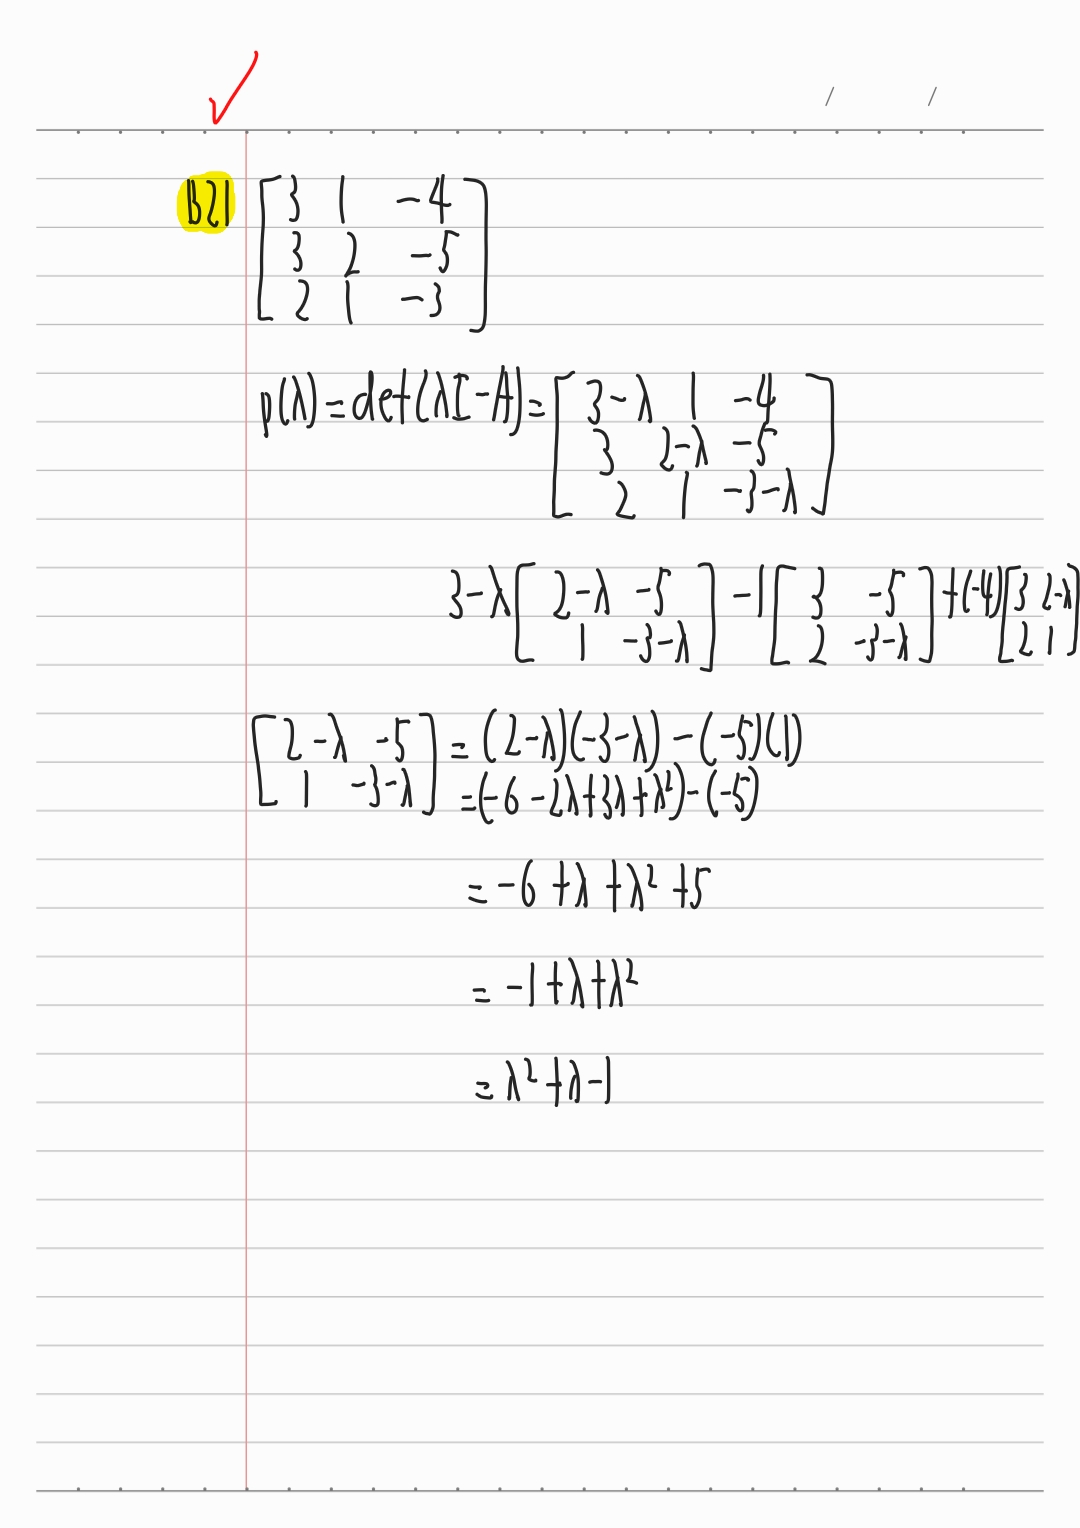 B21 [3 1 -4
3 2 -5
2 1 -3]
p(λ) = det(λI - A) = [3-λ 1 -4
3 2-λ -5
2 1 -3-λ]
3-λ [2-λ -5 1 -3-λ] -1 [3 -5 2 -3-λ] +(-4) [3 2-λ 2 1]
[2-λ -5 = (2-λ)(-3-λ) - (-5)(1)
1 -3-λ] = (-6 -2λ + 3λ + λ²) - (-5)
= -6 + λ + λ² + 5
= -1 + λ + λ²
= λ² + λ - 1